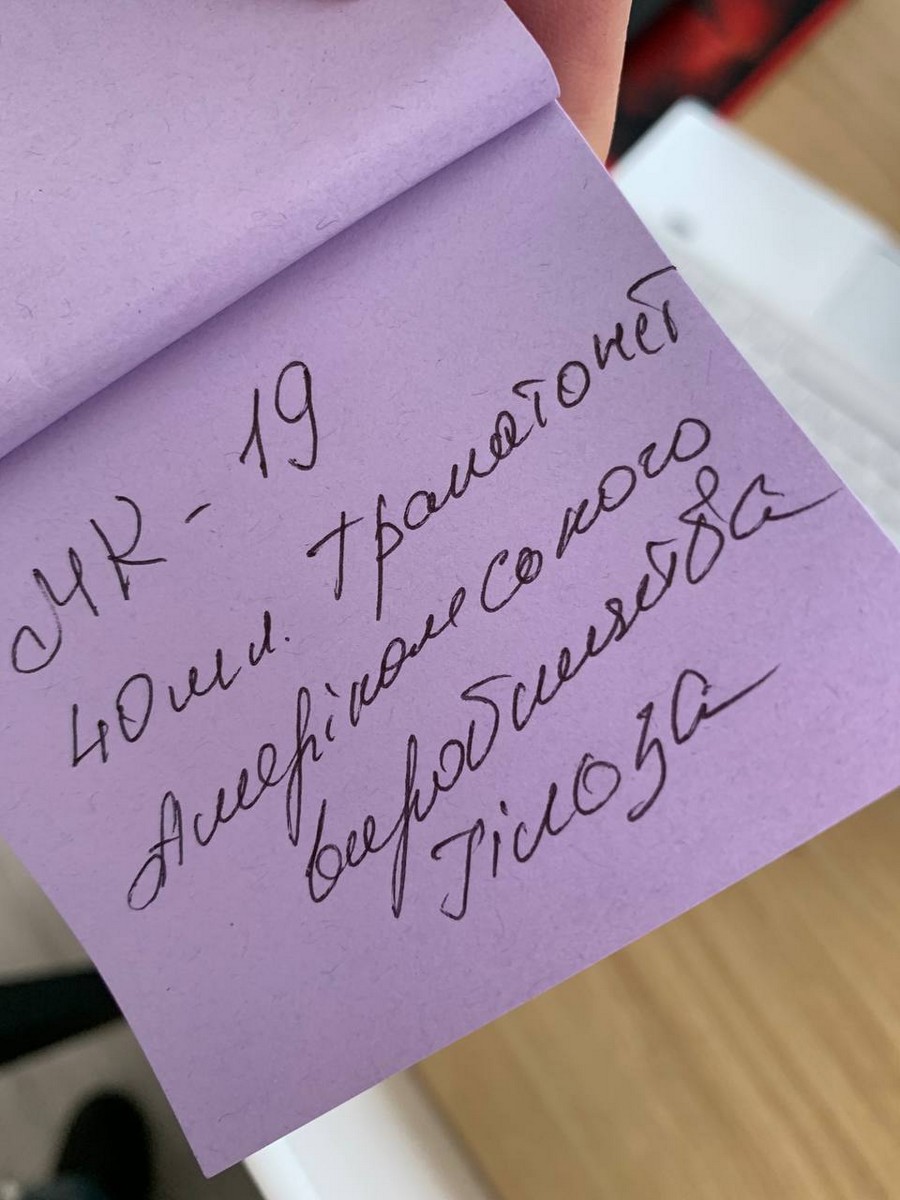 МК - 19
40 мм. гранатомет
Американського
виробництва
гільза